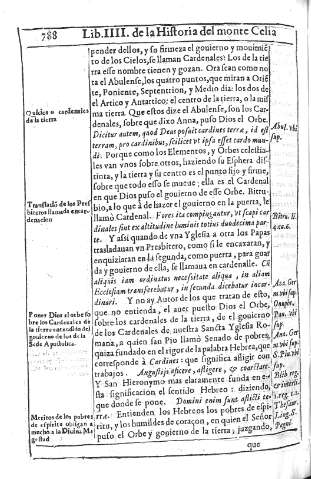 788 Lib. IIII. de la Historia del monte Celia
pender dellos, y su firmeza el gouierno y mouimiẽ
to de los Cielos, se llaman Cardenales: Los de la tie
rra esse nombre tienen y gozan. Ora sean como no
ta el Abulense, los quatro puntos, que miran a Oriẽ
te, Poniente, Septentrion, y Medio dia: los dos de
el Artico y Antartico: el centro de la tierra, o la mis
ma tierra. Que estos dize el Abulense, son los Car
denales, sobre que dixo Anna, puso Dios el Orbe.
Dicitur autem, quod Deus posuit cardines terra, id est
terram, pro cardinibus, scilicet vt ipsa esset cardo mun
di: Porque como los Elementos, y Orbes celestia-
les van vnos sobre otros, haziendo su Esphera dis-
tinta, y la tierra y su centro es el punto fijo y firme,
sobre que todo esso se mueue; ella es el Cardenal
en que Dios puso el gouierno de esse Orbe. Bitru-
bio, a lo que à de hazer el gouierno en la puerta, le
llamò Cardenal. Fores ita compingantur, vt scapi car
dinales sint ex altitudine luminis totius duodecima par-
te. Y assi quando de vna Yglesia a otra los Papas
trasladauan vn Presbitero, como si le encaxaran, y
enquiziaran en la segunda, como puerta, para guar
da y gouierno de ella, se llamaua en cardenalle. Cũ
aliquis iam ordinatus necessitate aliqua, in aliam
Ecclesiam transferebatur, in secunda dicebatur incar-
dinari. Y no ay Autor de los que tratan de esto,
que no entienda, el auer puesto Dios el Orbe
sobre los cardenales de la tierra, de el gouierno
de los Cardenales de nuestra Sancta Yglesia Ro-
mana, a quien san Pio llamò Senado de pobres,
quiza fundado en el rigor de la palabra Hebrea, que
corresponde à Cardines: que significa afligir con
trabajos. Angustijs afficere, affligere, & coarctare.
Y San Hieronymo mas claramente funda en es-
ta significacion el sentido Hebreo: diziendo,
que donde se pone. Domini enim sunt afflicti te-
rræ. Entienden los Hebreos los pobres de espi-
ritu, y los humildes de coraçon, en quien el Señor
puso el Orbe y gouierno de la tierra, juzgando,
que
Quicios o cardenales
de la tierra
Translacion de los Pres
biteros llamada encar-
denacion
Pone Dios el orbe so
bre los Cardenales de
la tierra entendido del
gouierno de los de la
Sede Apostolica.
Meritos de los pobres
de espiritu obligan a
mucho a la Diuina Ma
gestad
Abul. vbi
sup.
Bitru. li.
4. ca. 6.